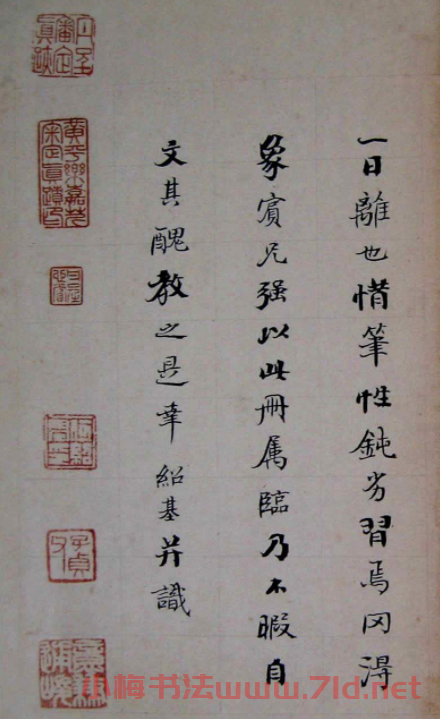 一日離也惜筆性鈍劣習焉罔得
象賓兄强以此冊属臨乃不暇自
文其醜教之是幸紹基并識
子貞
小梅书法www.7ld.net